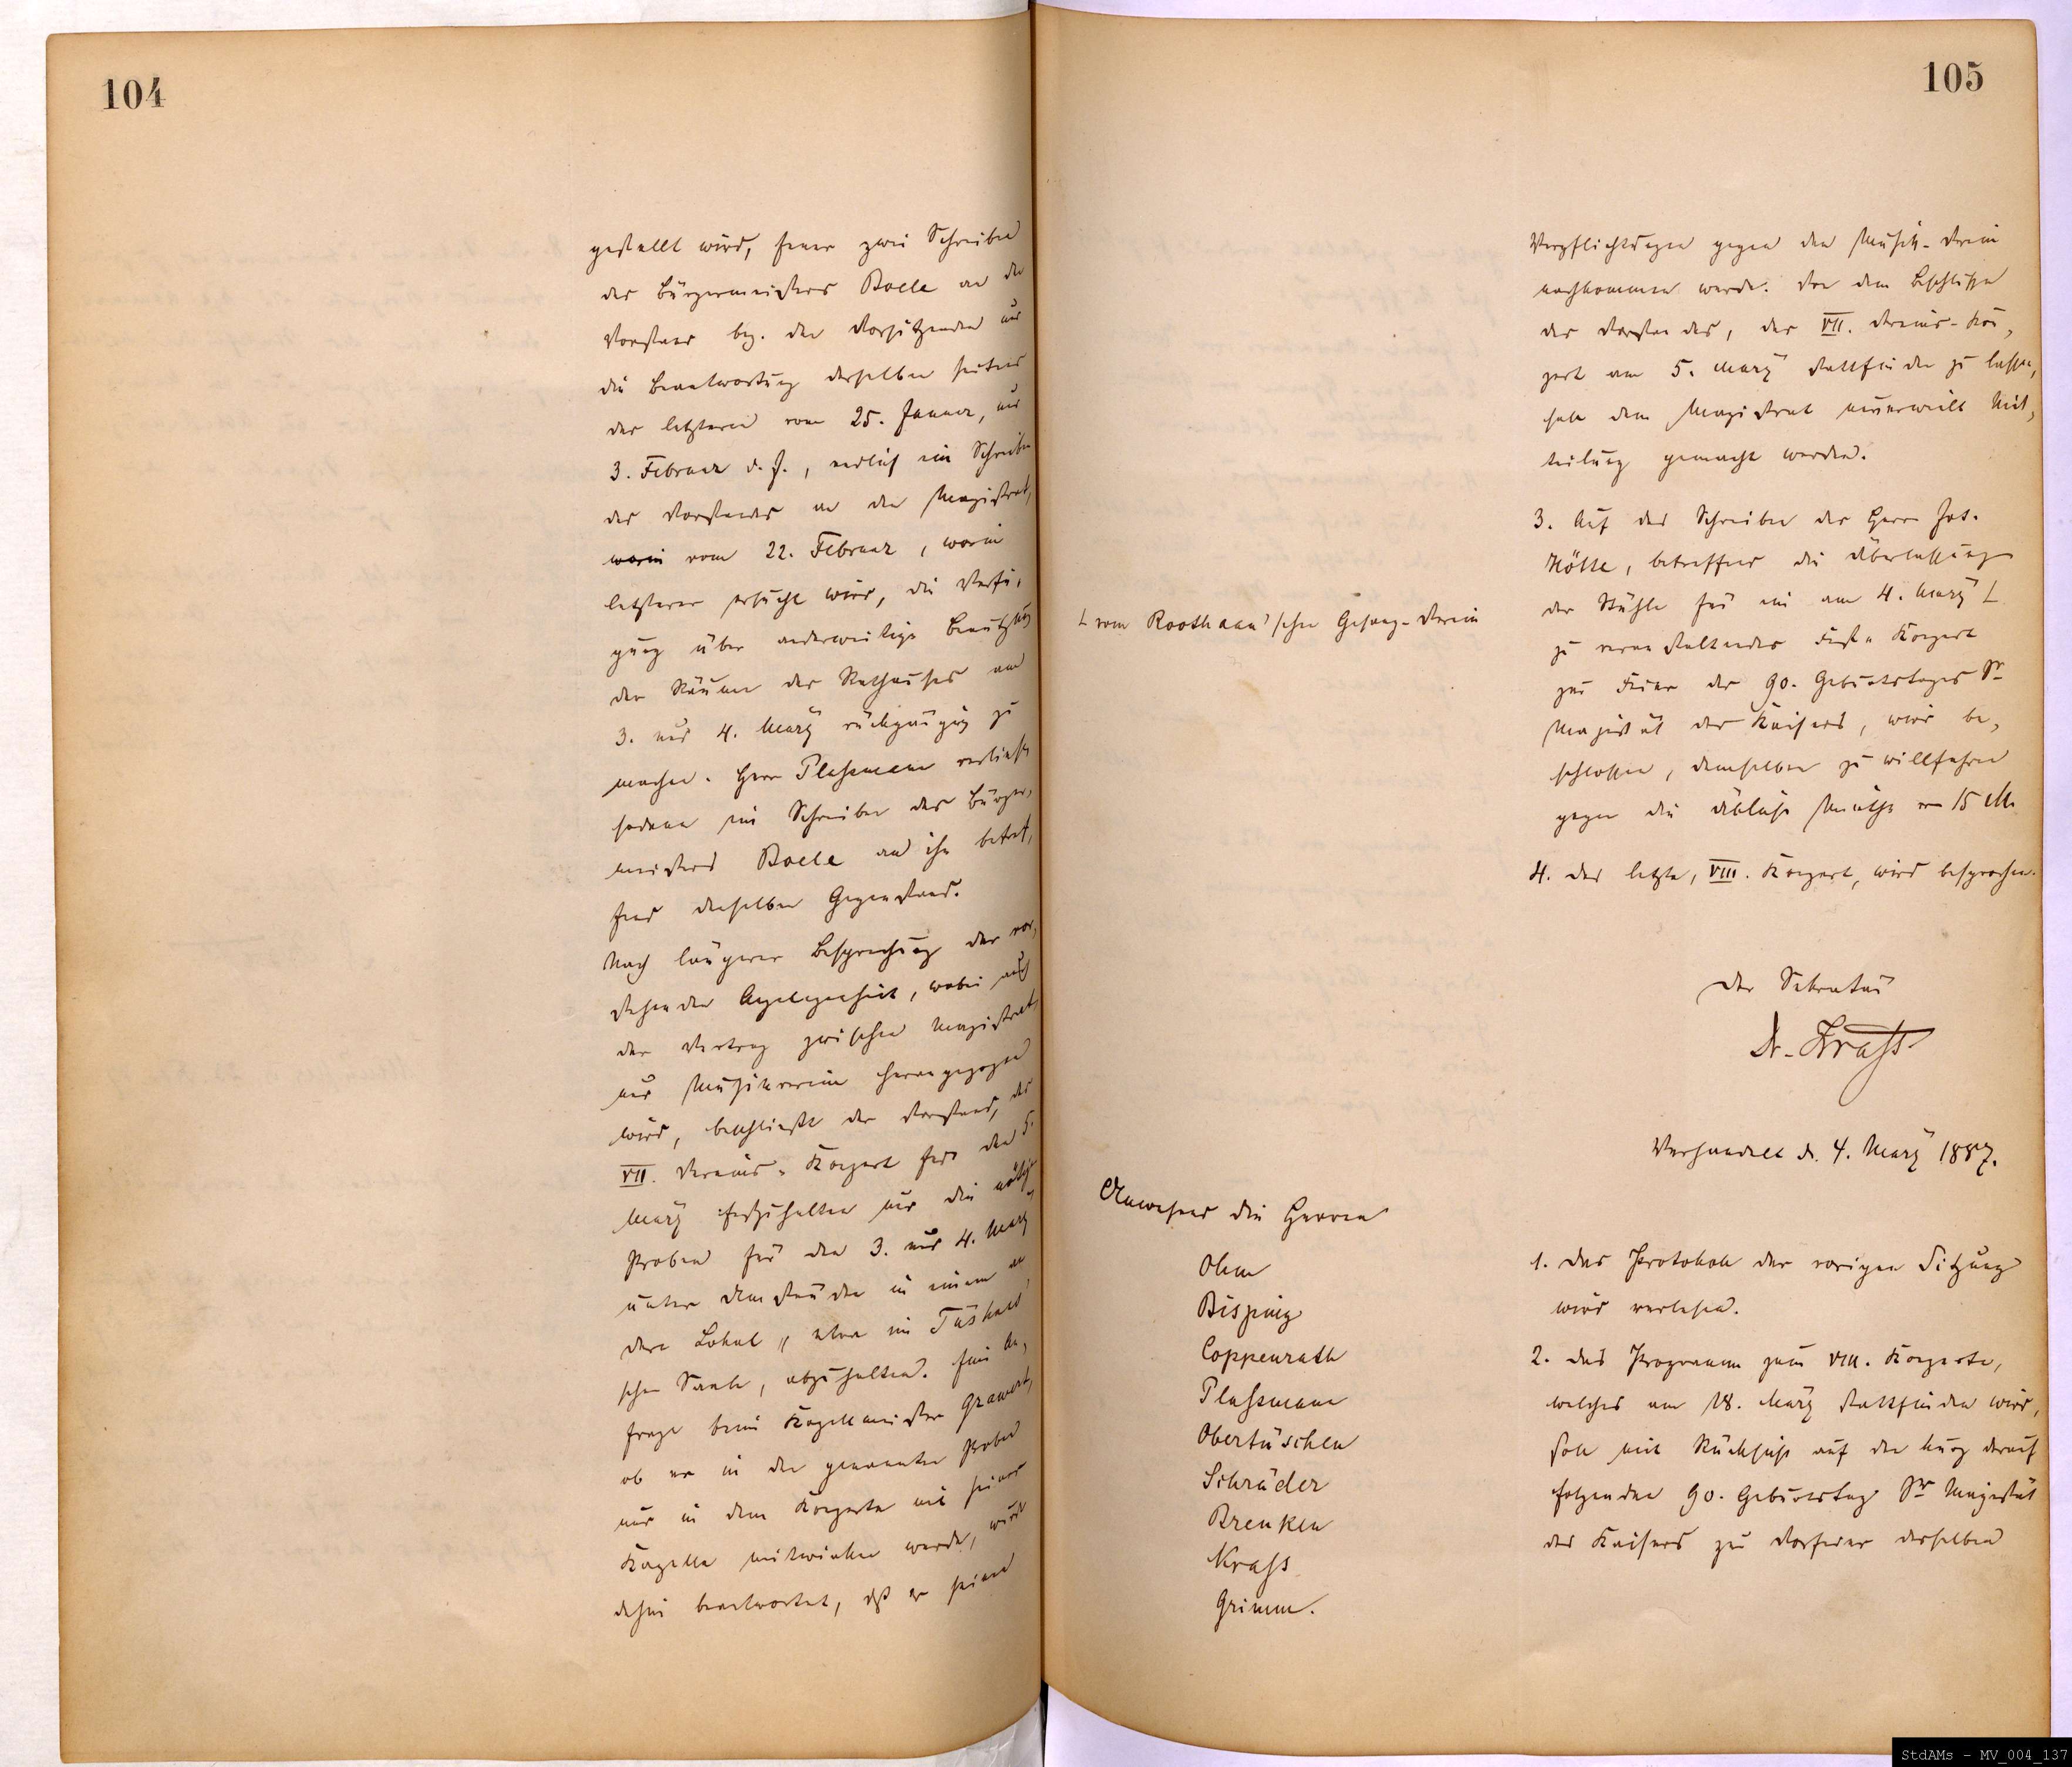 104
gestellt wird, ferner zwei Schreiben
des Bürgermeisters Boele an den
Vorstand bez. den Vorsitzenden und
die Beantwortung derselben seitens
des letzteren vom 25. Januar, und
3. Februar d. J., endlich ein Schreiben
des Vorstandes an den Magistrat,
worin vom 22. Februar, worin
letzterer ersucht wird, die Verfü,
gung über anderweitige Benutzung
der Räume des Rathauses am
3. und 4. März rückgängig zu
machen. Herr Plaßmann verliest
sodann ein Schreiben des Bürger,
meisters Boele an ihn betref,
fend denselben Gegenstand.
Nach längerer Besprechung der vor,
stehenden Angelegenheit, wobei auch
der Vertrag zwischen Magistrat
und Musikverein herangezogen
wird, beschließt der Vorstand, das
VII. Vereins-Konzert für den 5.
März festzuhalten und die nötigen
Proben für den 3. und 4. März
unter Umständen in einem an,
dern Lokal, etwa im Tüshaus
schen Saale, abzuhalten. Eine An,
frage beim Kapellmeister Grawert,
ob er in den genannten Proben
und in dem Konzerte mit seiner
Kapelle mitwirken werde, wird
dahin beantwortet, daß er seinen
105
Verpflichtungen gegen den Musik-Verein
nachkommen werde. Von dem Beschlusse
des Vorstandes, das VII. Vereins-Kon,
zert am 5. März stattfinden zu lassen,
soll dem Magistrat unverweilt Mit,
teilung gemacht werden.
3. Auf das Schreiben des Herrn Jos.
Hötte, betreffend die Überlassung
der Stühle für ein am 4. März ⌊
⌊ vom Roothaan'schen Gesang-Verein
zu veranstaltendes Fest-Konzert
zur Feier des 90. Geburtstages Sr
Majestät des Kaisers, wird be,
schlossen, demselben zu willfahren
gegen die übliche Miethe von 15 M.
4. Das letzte, VIII. Konzert, wird besprochen.
Der Sekretär
Dr. Krass
Verhandelt d. 4. März 1887.
Anwesend die Herren
Ohm
Bisping
Coppenrath
Plaßmann
Obertüschen
Schräder
Brenken
Kraß
Grimm.
1. Das Protokoll der vorigen Sitzung
wird verlesen.
2. Das Programm zum VIII. Konzerte,
welches am 18. März stattfinden wird,
soll mit Rücksicht auf den kurz darauf
folgenden 90. Geburtstag Sr Majestät
des Kaisers zu Vorfeier desselben
StdAMs - MV_004_137